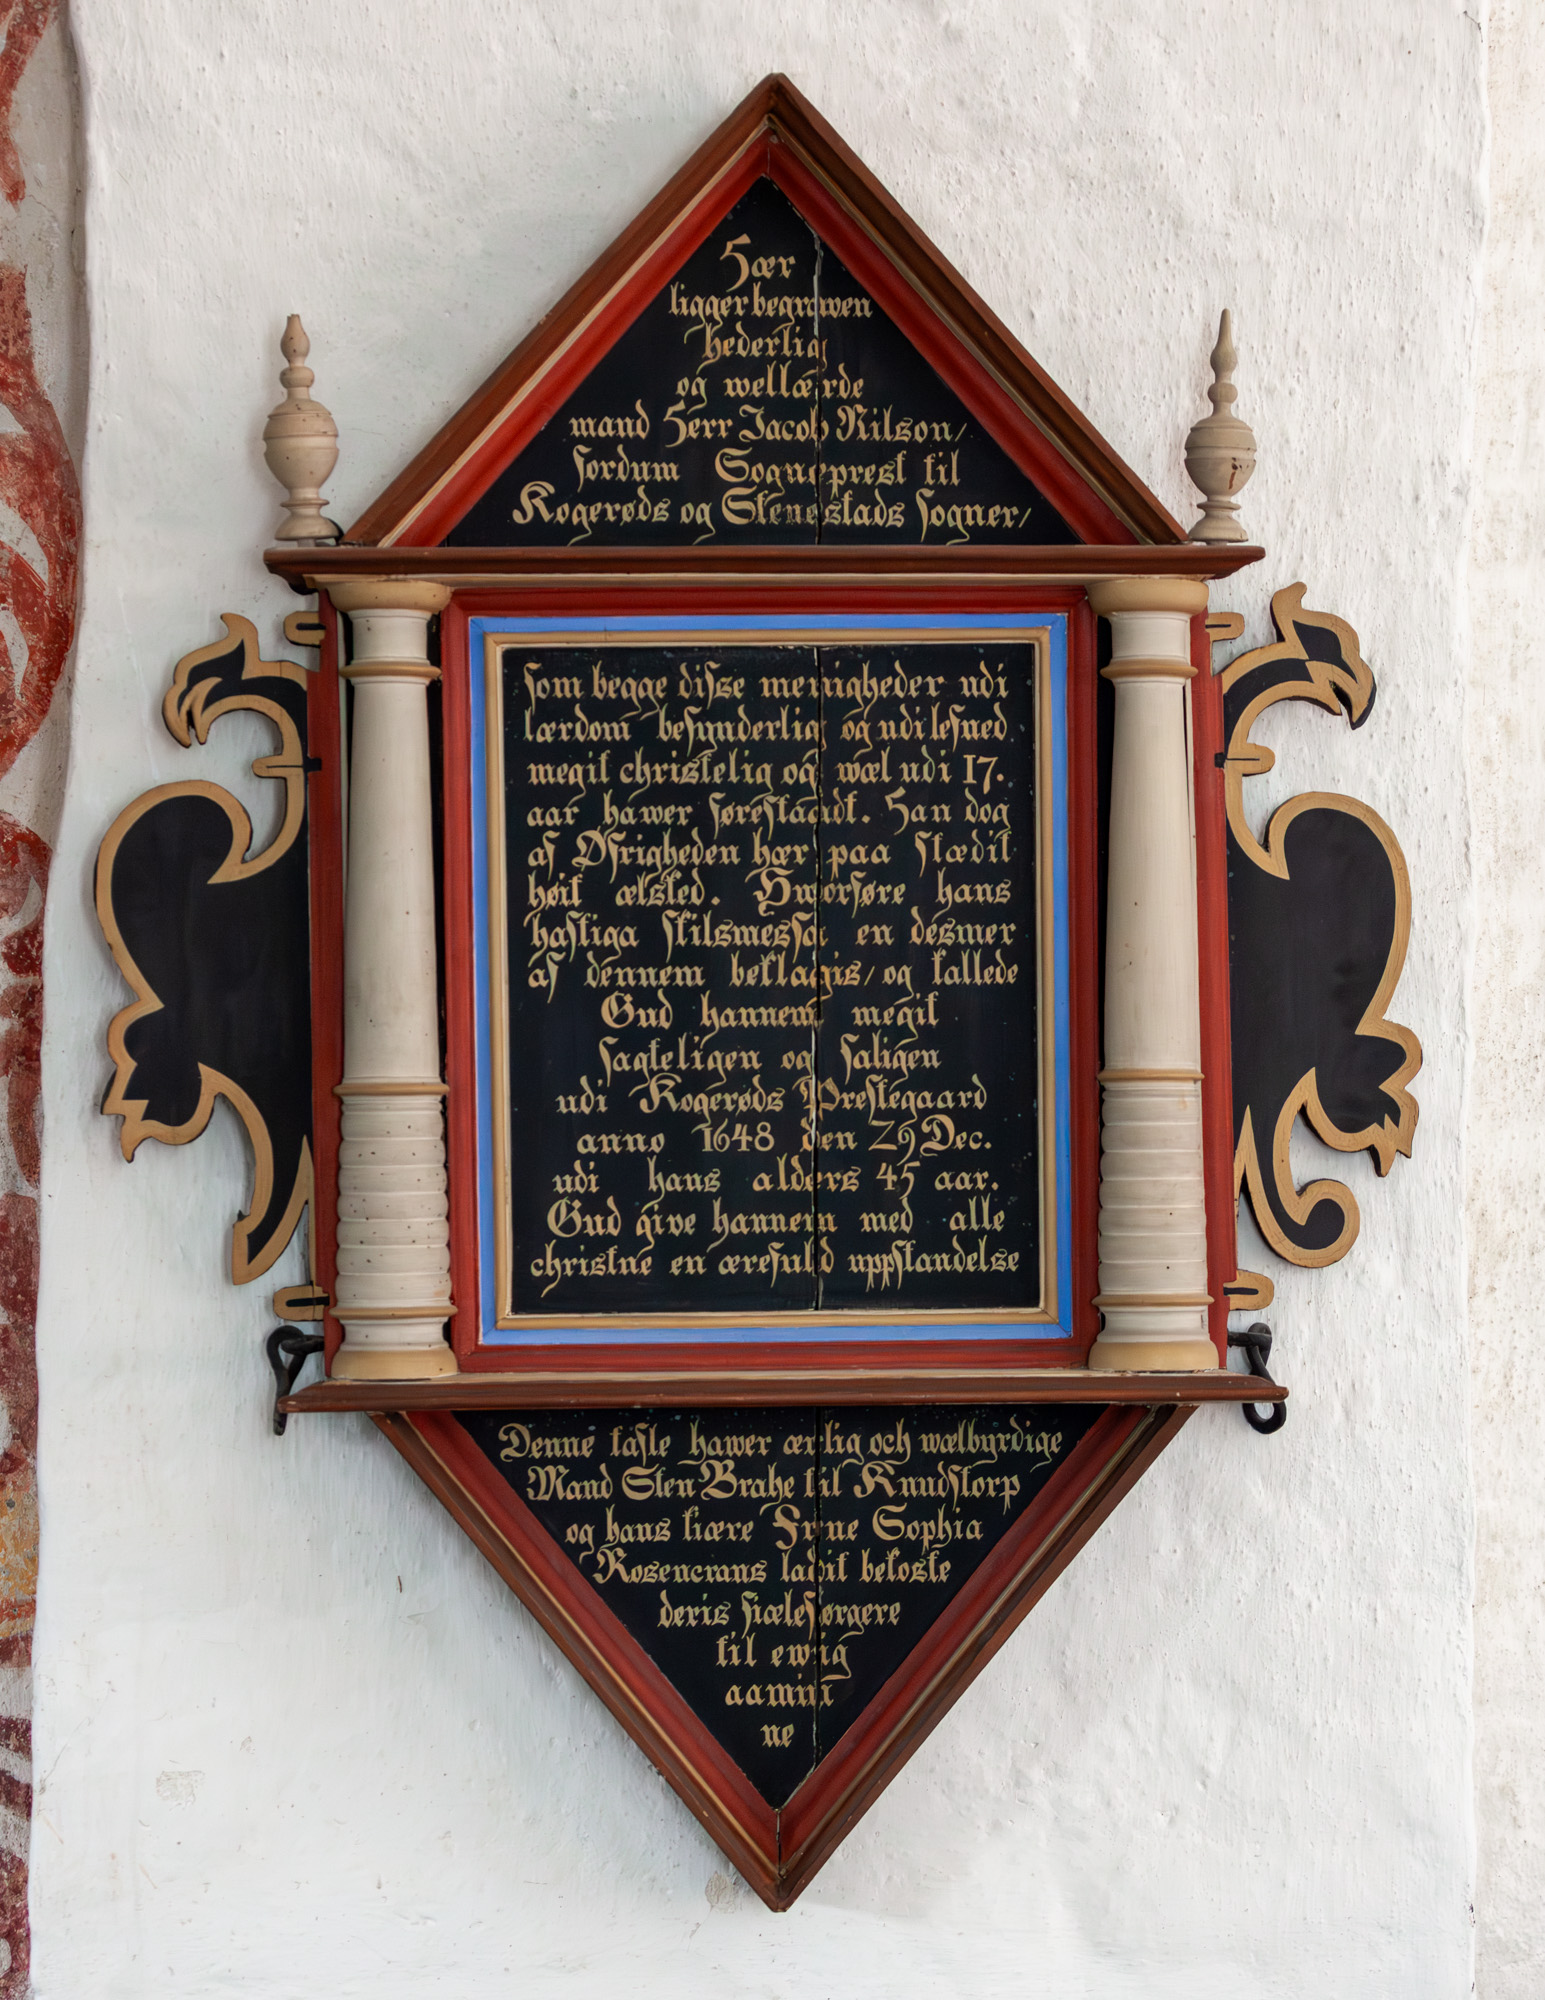 Hær
ligger begrawen
hederlig
og wellærde
mand Herr Jacob Nilson/
fordum Sogneprest til
Kogerøds og Stenestads sogner/
som begge disse menigheder udi
lærdom besynderlig og udi lefned
megit christelig og wæl udi 17.
aar hawer førestaadt. Han dog
af Øfrigheden hær paa stædit
høit ælsked. Hworføre hans
hastiga skilsmessa en desmer
af dennem beklagis/ og kallede
Gud hannem megit
sagteligen og saligen
udi Kogerøds Prestegaard
anno 1648 den 29 Dec.
udi hans alders 45 aar.
Gud give hannem med alle
christne en ærefuld uppstandelse
Denne tafle hawer ærlig och wælbyrdige
Mand Sten Brahe til Knudstorp
og hans kiære Frue Sophia
Rosencrans ladit bekoste
deris siælesørgere
til ewig
aamin̄
ne